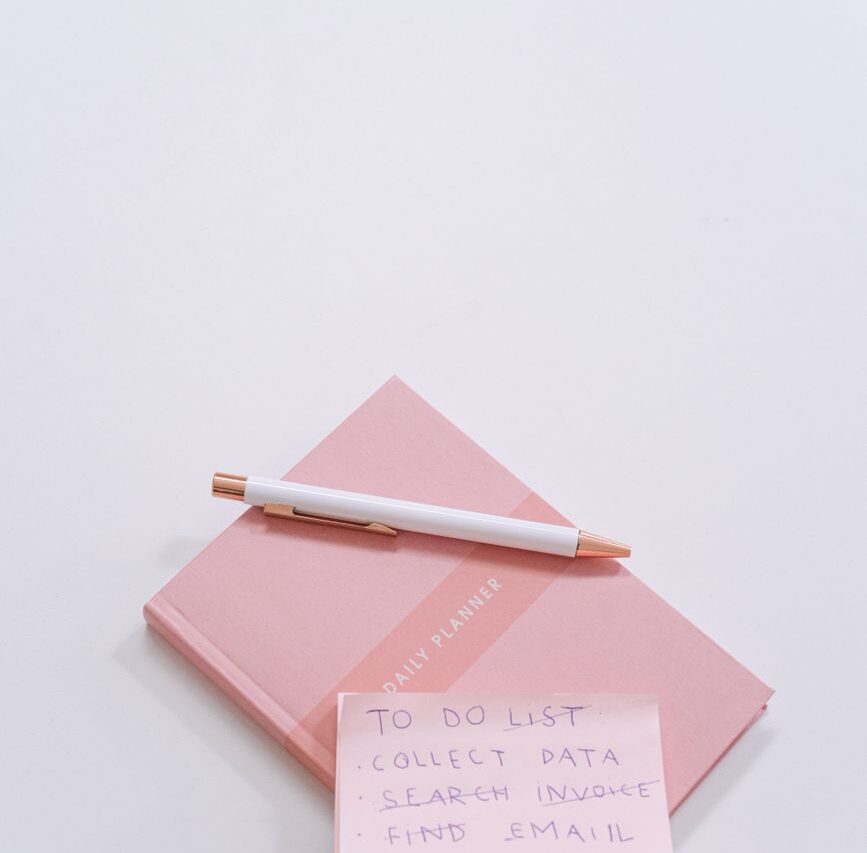 DAILY PLANNER
TO DO LIST
· COLLECT DATA
· SEARCH INVOICE
· FIND EMAIL